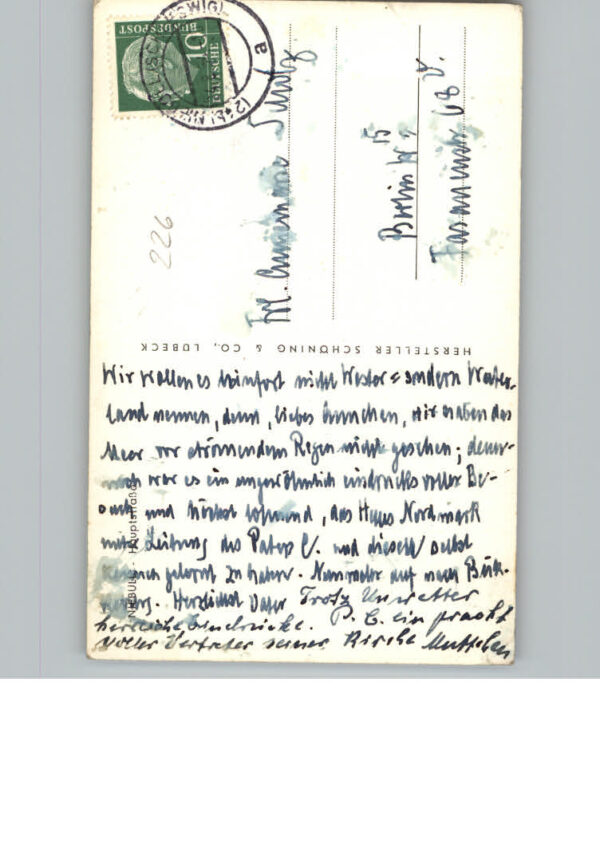 DEUTSCHE
BUNDESPOST
10
a
226
Frl. Annemarie
Berlin W 15
Fasanenstr. 68
HERSTELLER SCHÖNING & CO., LÜBECK
NIEBÜLL - Hauptstraße
Wir wollen es hinfort nicht Wester = sondern Wetter-
land nennen, denn, liebes Ännchen, wir haben das
Meer vor strömendem Regen nicht gesehen; denn-
noch war es ein ungewöhnlich eindrucksvoller Be-
such und höchst lohnend, das Haus Nordmark
unter Leitung des Pater C. und diesen selbst
kennen gelernt zu haben. Nunmehr auf nach
Herzlichst Vater Trotz Unwetter
herrliche Eindrücke. P. C. ein pracht
voller Vertreter seiner Kirche Muttchen